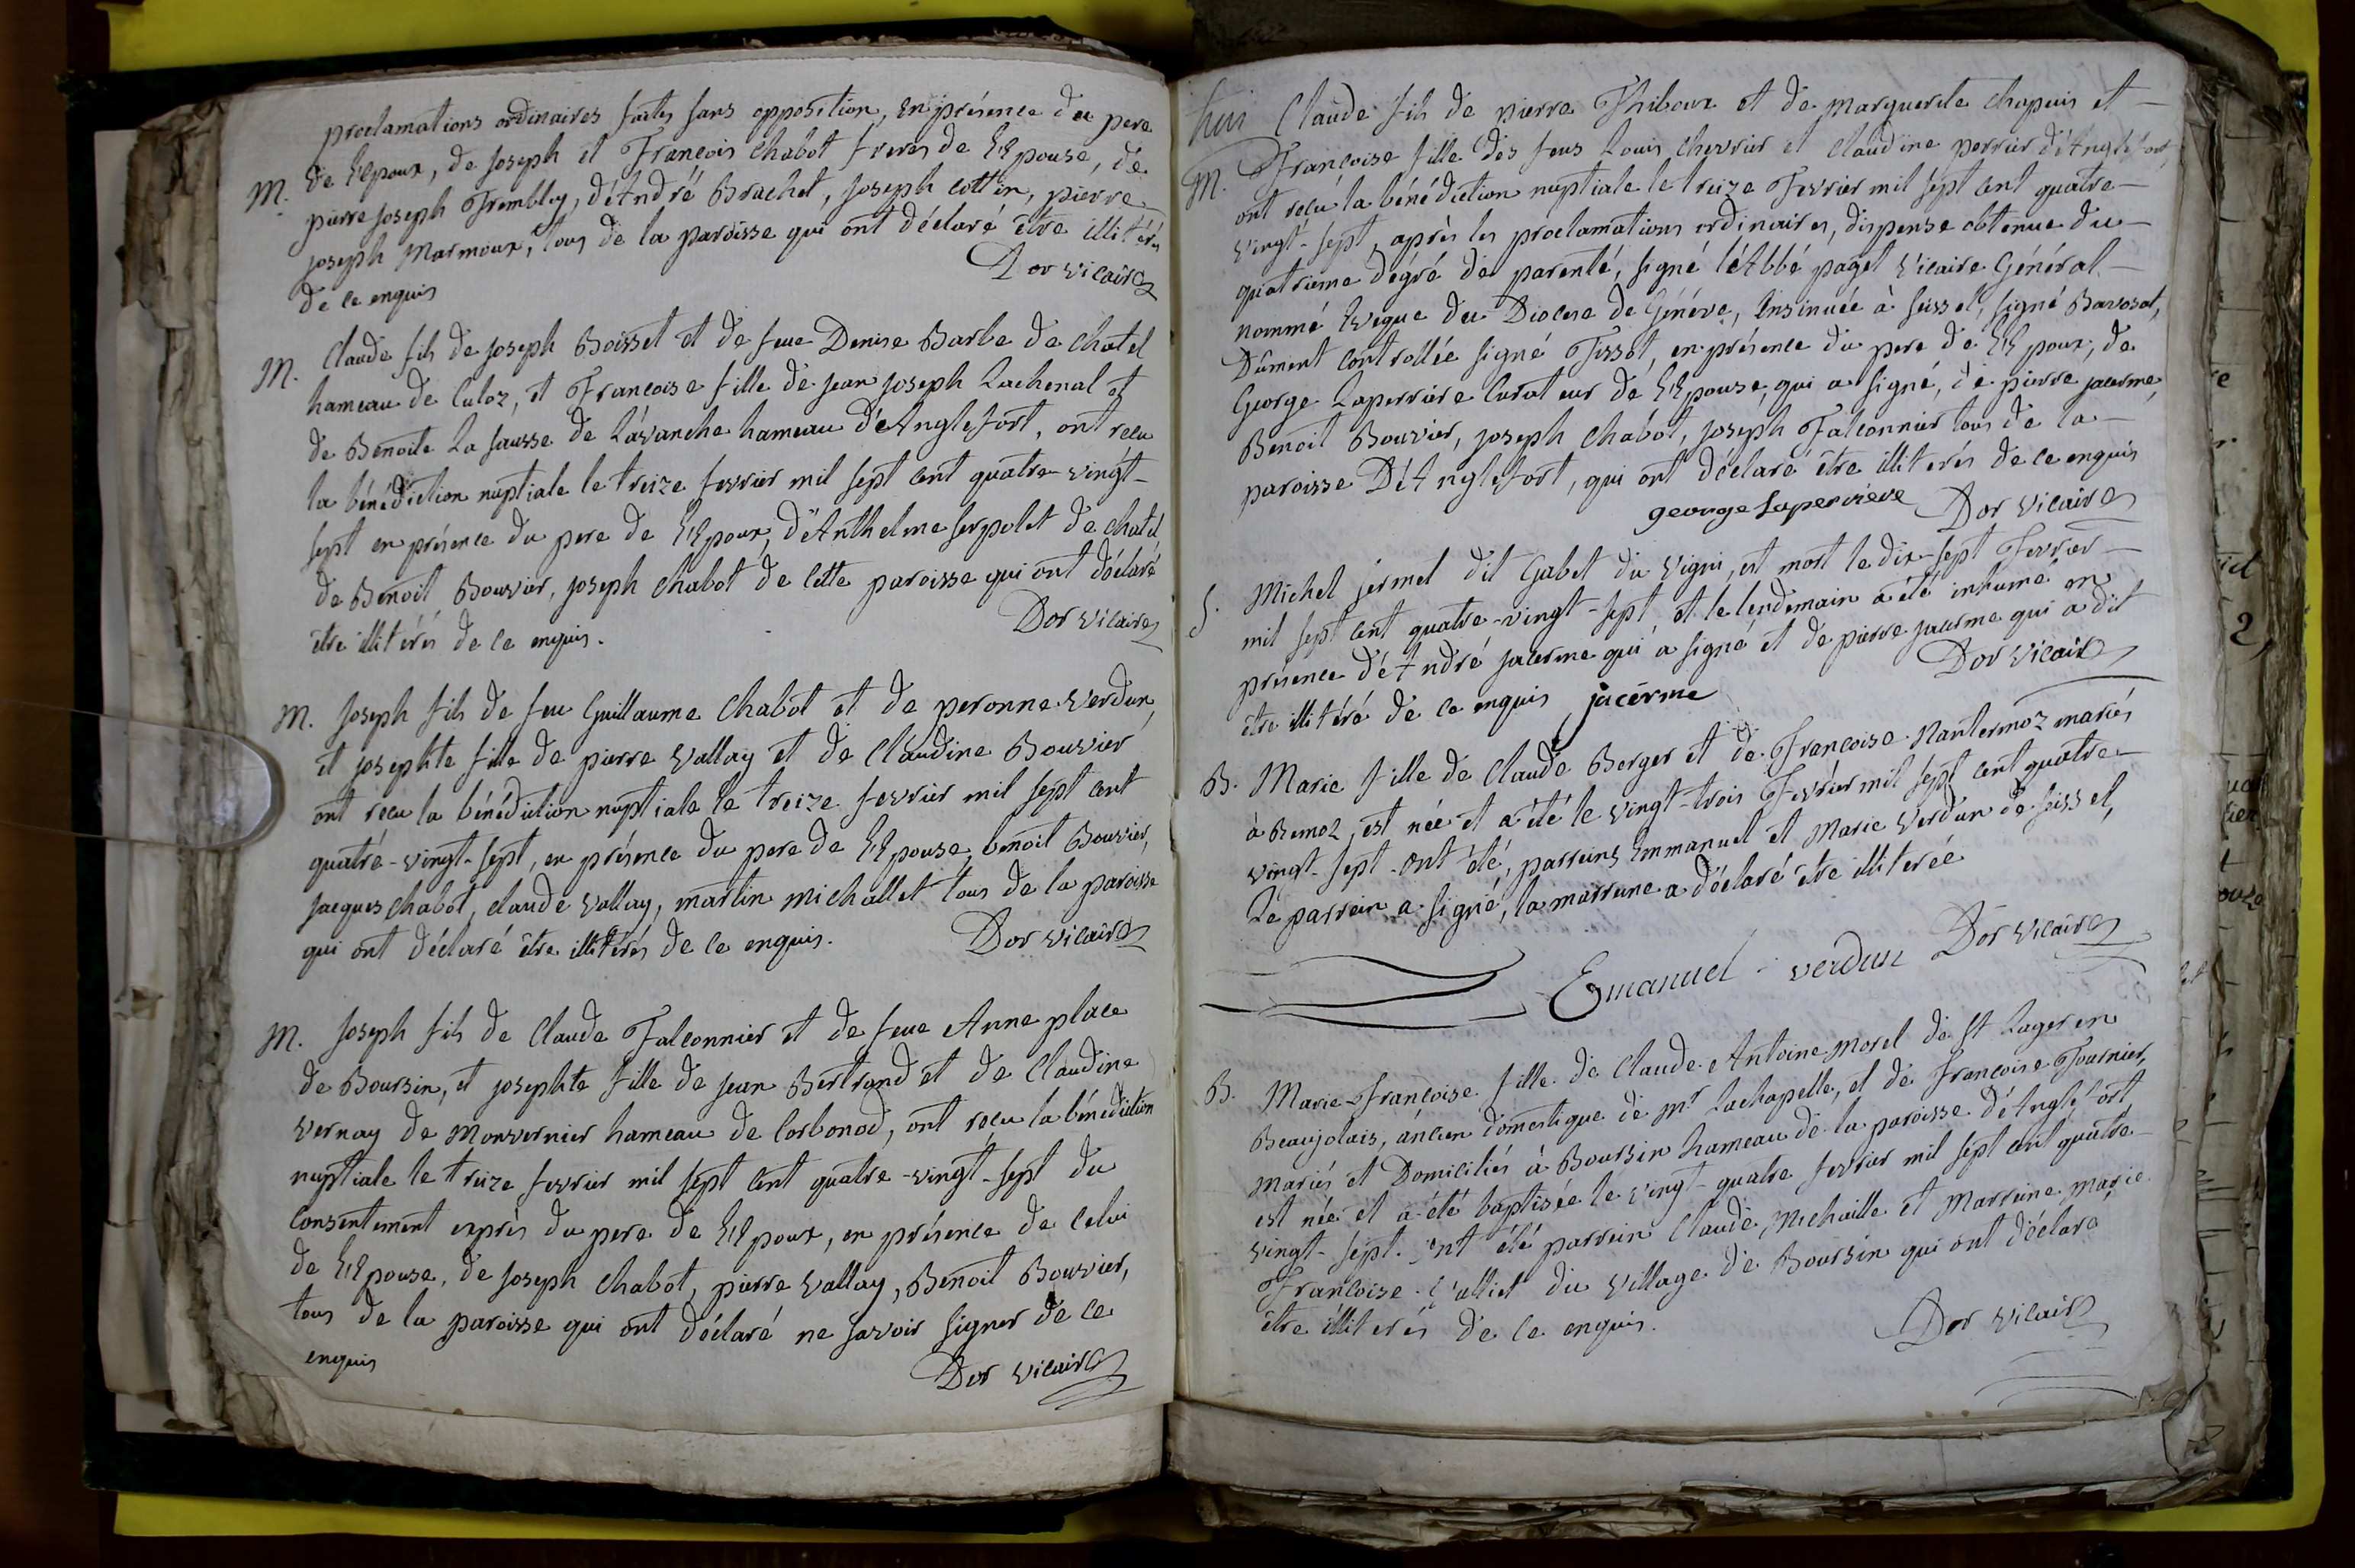 proclamations ordinaires faites sans opposition, en présence du pere
M. de l'Epoux, de joseph et François Chabot freres de l'Epouse, de
pierre joseph Trembley, d'André Brachet, joseph cottin, pierre
joseph Marmoux, tous de la paroisse qui ont déclaré être illitérés
de ce enquis Dor vicaire
M. Claude fils de joseph Boisset et de feue Denise Barbe de Chatel
hameau de Culoz, et Francoise fille de jean joseph Lachenal et
de Benoite La sausse de Lavanche hameau d'Anglefort, ont recu
la bénédiction nuptiale le treize fevrier mil sept cent quatre vingt-
sept en présence du pere de l'Epoux, d'Anthelme serpolet de chatel
de Benoit Bouvier, joseph Chabot de cette paroisse qui ont déclaré
être illitérés de ce enquis. Dor vicaire
M. joseph fils de feu Guillaume Chabot et de peronne Verdun,
et josephte fille de pierre Vallay et de Claudine Bouvier
ont recu la bénédiction nuptiale le treize fevrier mil sept cent
quatre-vingt-sept, en présence du pere de l'Epouse, benoit Bouvier,
jacques chabot, claude vallay, martin michallet tous de la paroisse
qui ont déclaré être illitérés de ce enquis. Dor vicaire
M. joseph fils de Claude Falconnier et de feue Anne place
de Boursin, et josephte fille de jean Bertrand et de Claudine
vernay de Monvernier hameau de Corbonod, ont reçu la bénédiction
nuptiale le treize fevrier mil sept cent quatre-vingt-sept du
consentement exprès du pere de l'Epoux, en présence de celui
de l'Epouse, de joseph Chabot, pierre vallay, Benoit Bouvier,
tous de la paroisse qui ont déclaré ne savoir signer de ce
enquis Dor vicaire
huis Claude fils de pierre Thiboux et de marguerite chapuis et
M. Françoise fille des feus Louis Chevrier et Claudine perrier d'Anglefort,
ont reçu la bénédiction nuptiale le treize Fevrier mil sept cent quatre-
vingt-sept, après les proclamations ordinaires, dispense obtenue du
quatrieme dégré de parenté, signé l'Abbé paget Vicaire Général
nommé Evêque du Diocese de Généve, Insinuée à seissel, signé Bavosat,
Dûment Controllée signé Tissot, en présence du pere de l'Epoux, de
George Laperriere Curateur de l'Epouse, qui a signé, de pierre jacerme,
Benoit Bouvier, joseph Chabot, joseph Falconnier tous de la
paroisse D'Anglefort, qui ont déclaré être illiterés de ce enquis
george laperrieve Dor Vicaire
S. Michel jermet dit Gabet du Vigni, est mort le dix-sept Fevrier
mil sept cent quatre-vingt-sept, et le lendemain a été inhumé en
présence d'André jacerme qui a signé et de pierre jacerme qui a dit
être illitéré de ce enquis jacerme Dor vicaire
B. Marie fille de Claude Berger et de Francoise Nantermoz mariés
à Bemoz, est née et a été le vingt-trois Fevrier mil sept cent quatre
vingt-sept. Ont été, parreins Emmanuel et Marie Verdun de seissel,
Le parrein a signé, la marreine a déclaré être illiterée
Emanuel verdun Dor vicaire
B. Marie-françoise fille de Claude Antoine Morel de St Lager en
Beaujolais, ancien domestique de Mr Lachapelle, et de Francoise Fournier,
Mariés et Domiciliés à Boursin hameau de la paroisse d'Anglefort
est née et a été baptisée le vingt-quatre fevrier mil sept cent quatre
vingt-sept. Ont été parrein Claude Michaille et Marreine marie
Françoise du Village de Boursin qui ont déclaré
être illiterés de ce enquis. Dor vicaire